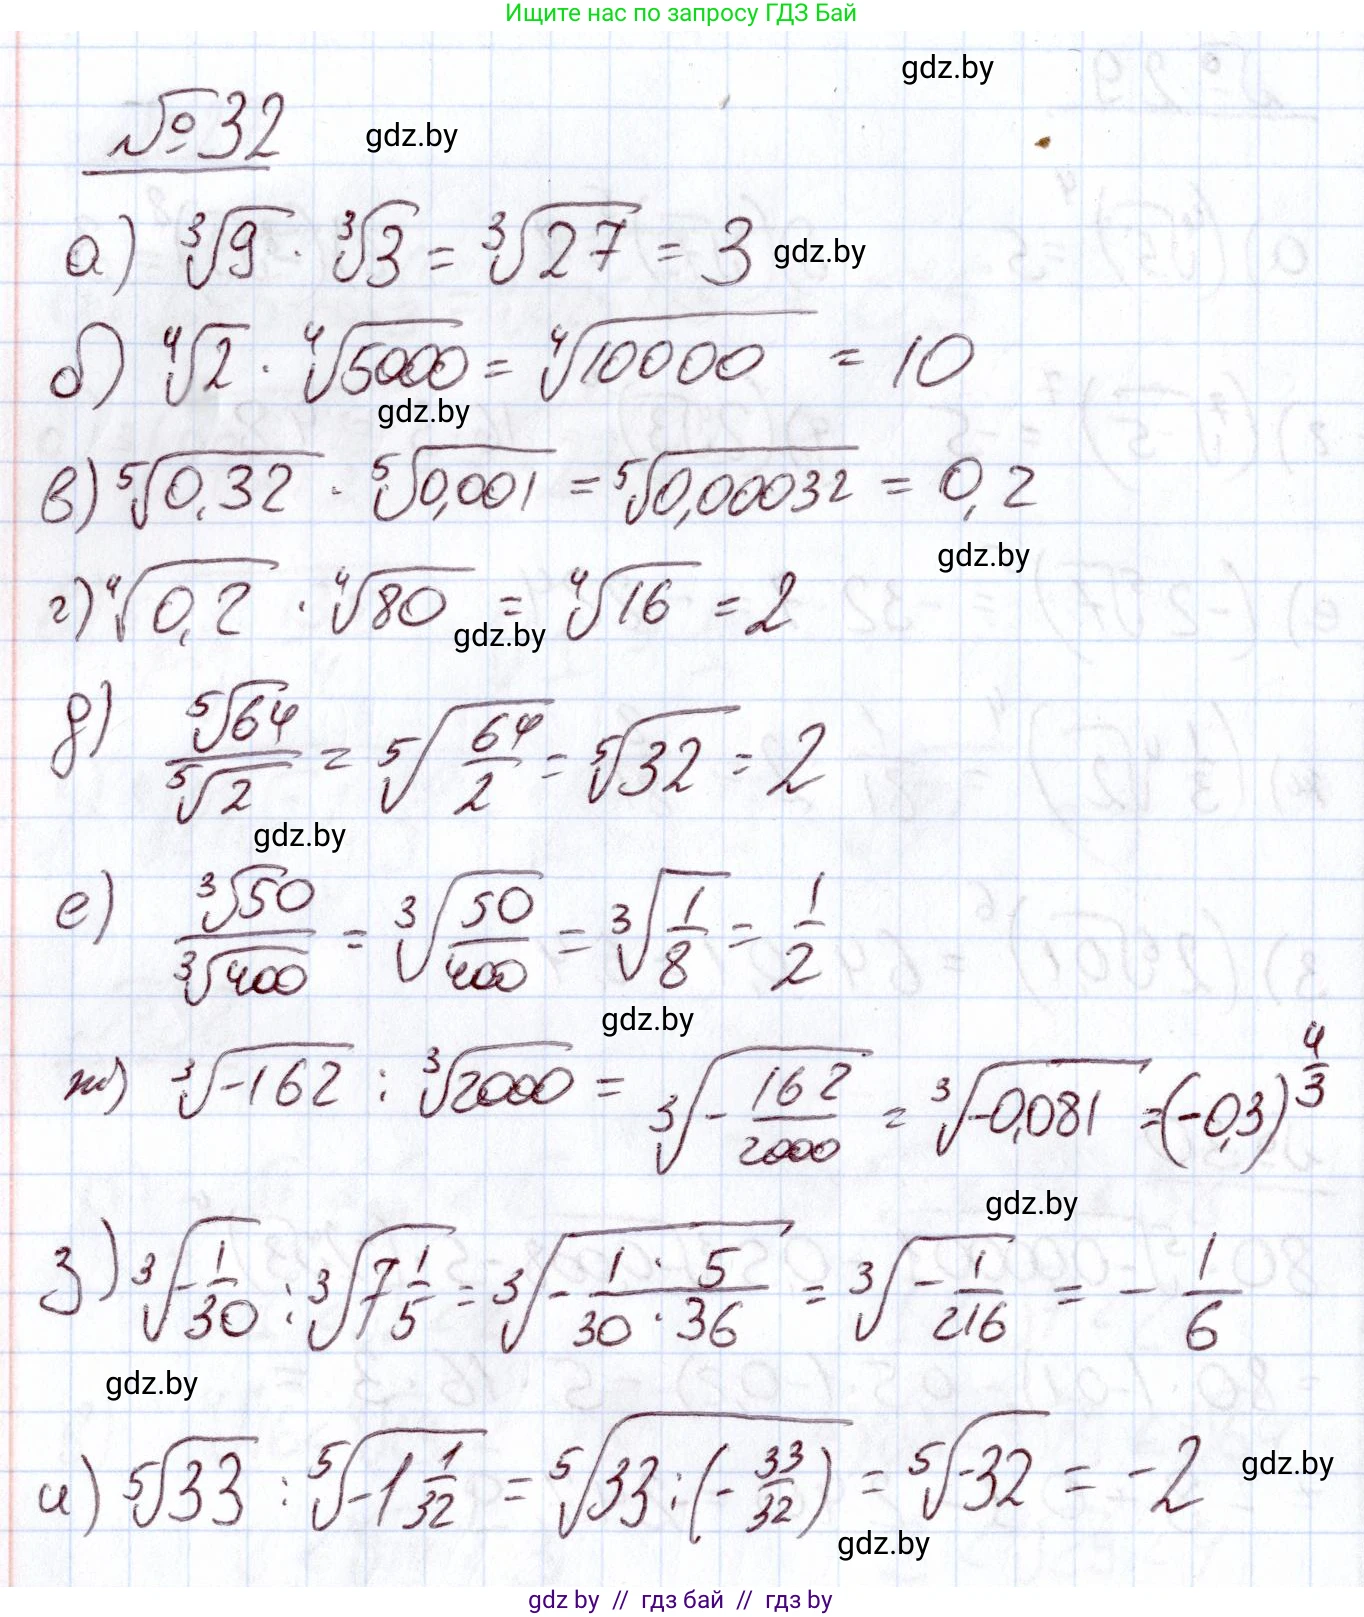 Ищите нас по запросу ГДЗ Бай
gdz.by
№32
gdz.by
а) ∛9 · ∛3 = ∛27 = 3
gdz.by
б) ∜2 · ∜5000 = ∜10000 = 10
gdz.by
в) ⁵√0,32 · ⁵√0,001 = ⁵√0,00032 = 0,2
gdz.by
г) ∜0,2 · ∜80 = ∜16 = 2
gdz.by
д) ⁵√64 / ⁵√2 = ⁵√(64/2) = ⁵√32 = 2
gdz.by
е) ∛50 / ∛400 = ∛(50/400) = ∛(1/8) = 1/2
gdz.by
ж) ∛-162 : ∛2000 = ∛(-162/2000) = ∛-0,081 = (-0,3)^(4/3)
gdz.by
з) ∛(-1/30) : ∛(7 1/5) = ∛(-(1 · 5)/(30 · 36)) = ∛(-1/216) = -1/6
gdz.by
и) ⁵√33 : ⁵√(-1 1/32) = ⁵√(33 : (-33/32)) = ⁵√-32 = -2
gdz.by
gdz.by
gdz by // гдз бай // гдз by